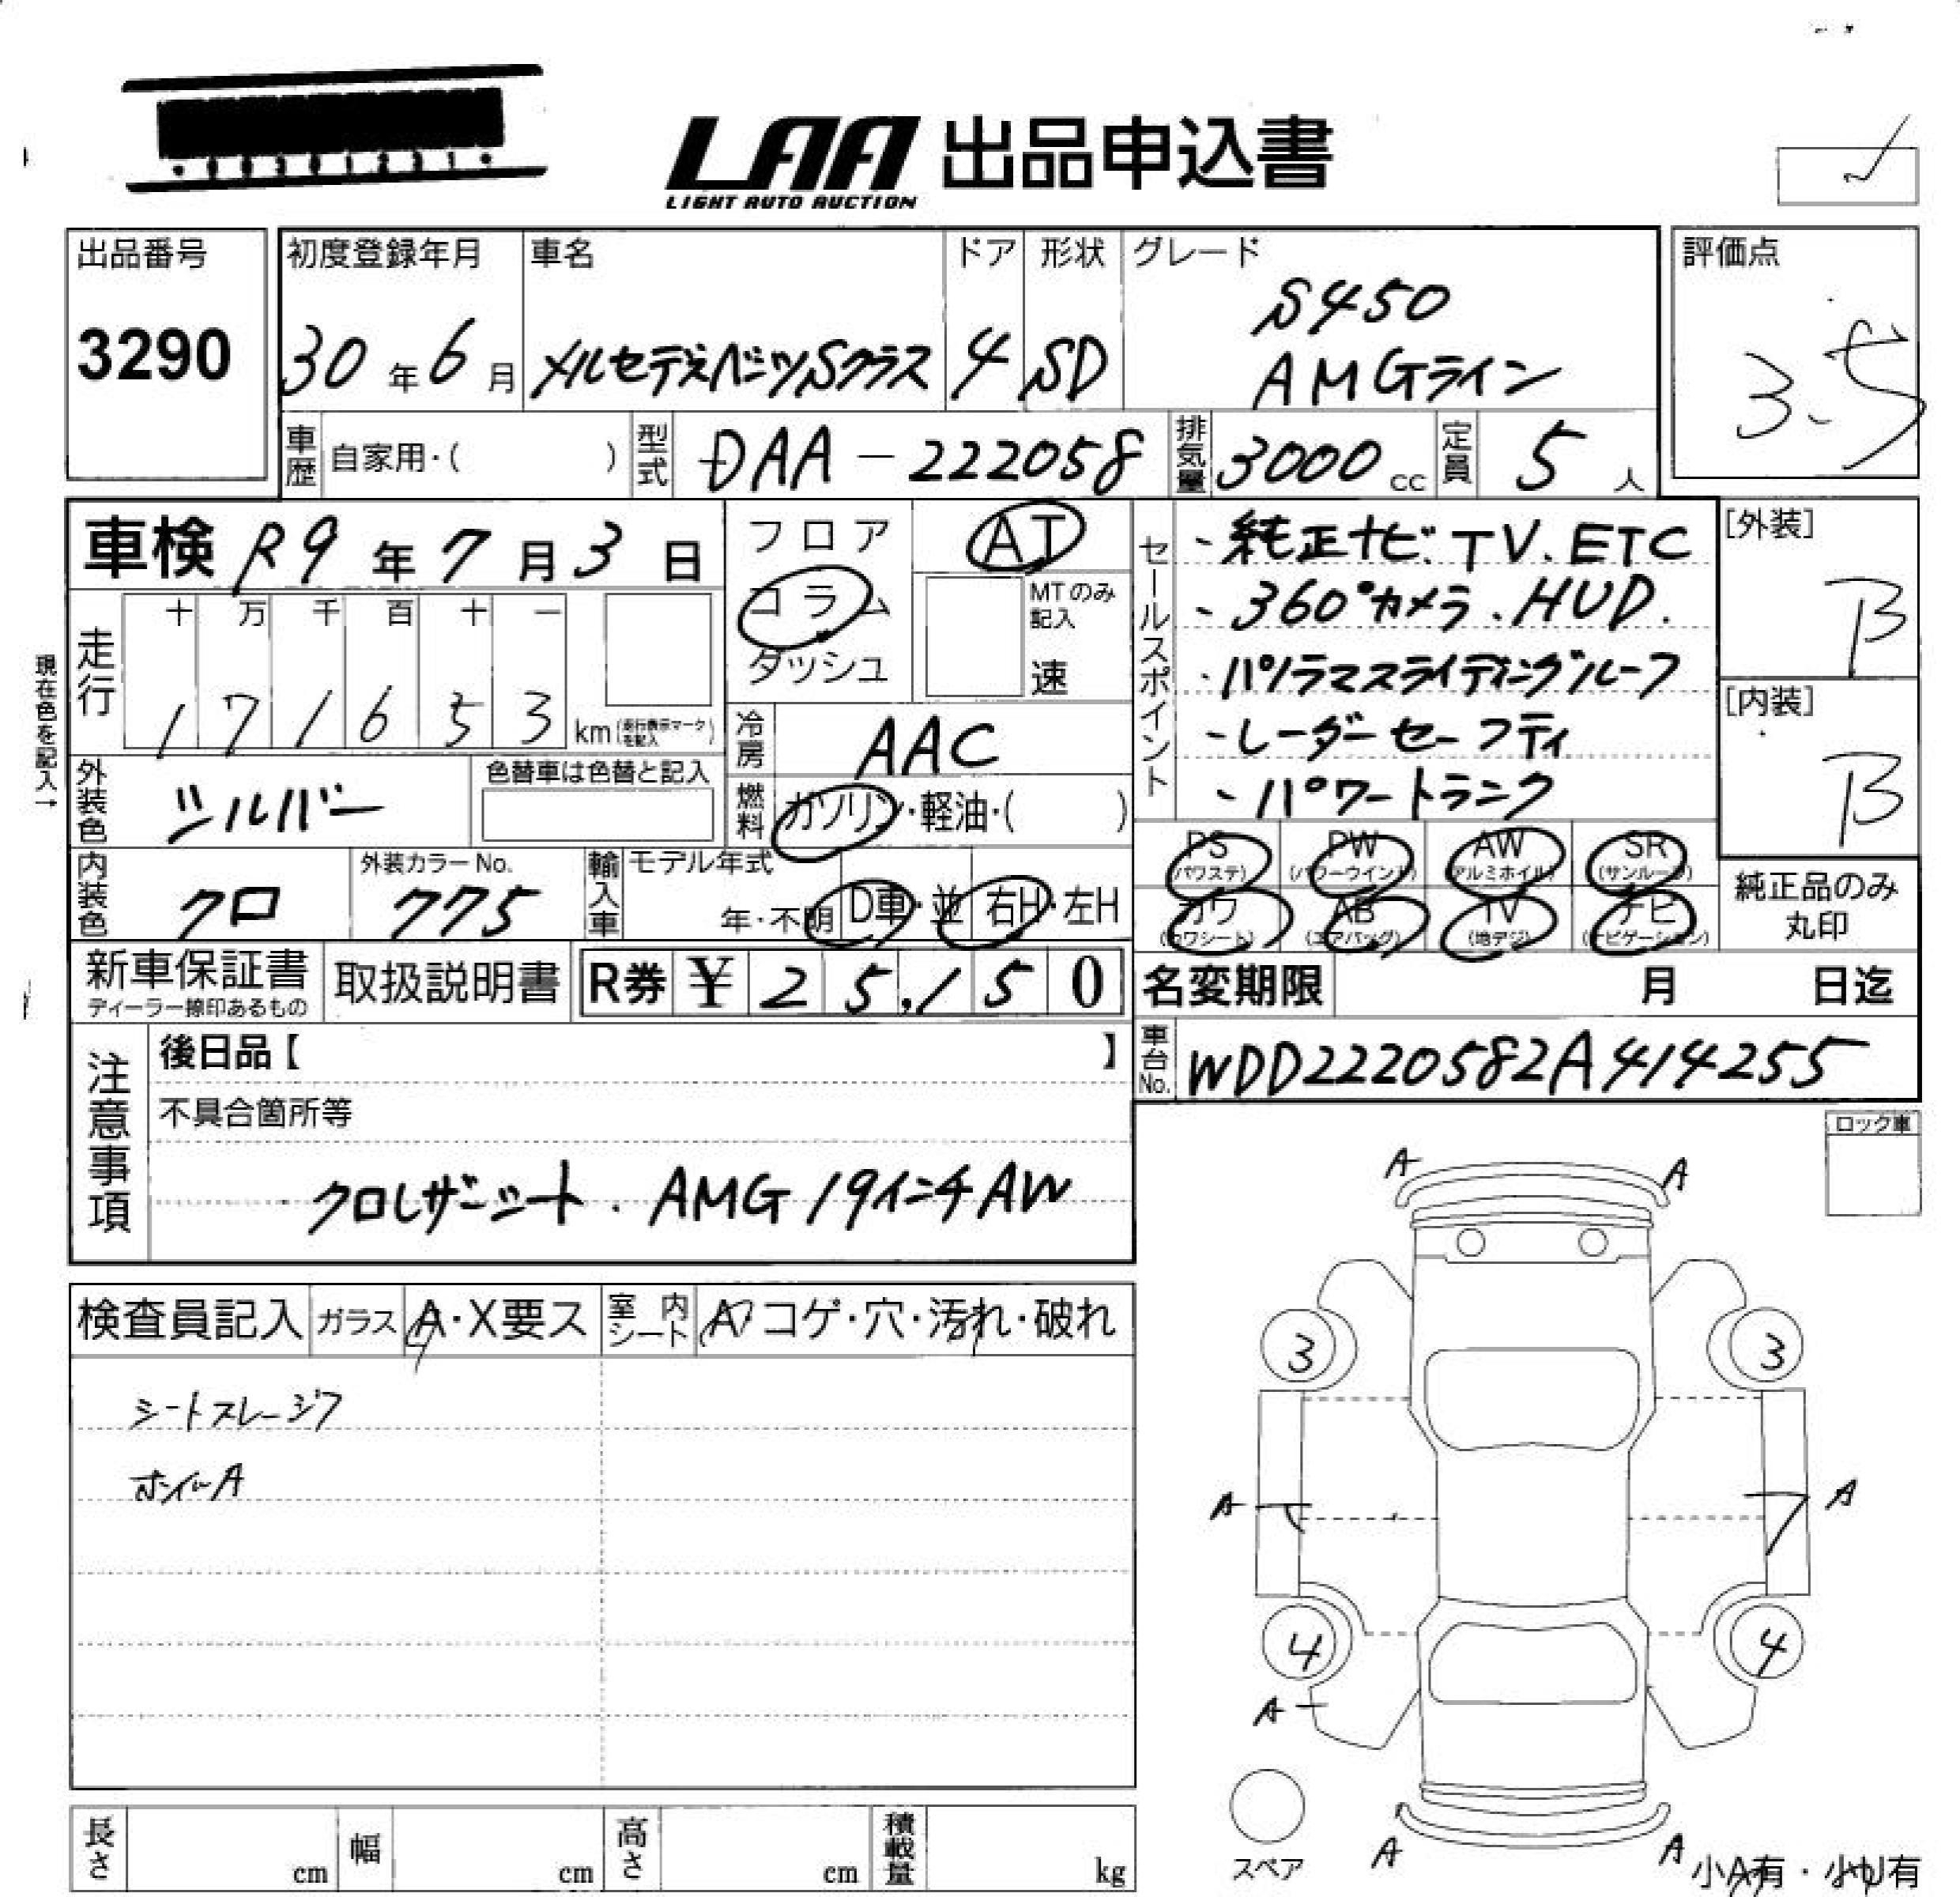 LAA 出品申込書
LIGHT AUTO AUCTION
出品番号
3290
初度登録年月
30年6月
車名
メルセデスベンツSクラス
ドア
4
形状
SD
グレード
S450
AMGライン
評価点
3.5
車歴
自家用・( )
型式
DAA-222058
排気量
3000cc
定員
5人
車検 R9年7月3日
フロア
コラム
ダッシュ
AT
MTのみ
記入
速
セールスポイント
・純正ナビ.TV.ETC
・360°カメラ.HUD.
・パノラマスライディングルーフ
・レーダーセーフティ
・パワートランク
[外装]
B
[内装]
B
現在色を記入→
走行
十 万 千 百 十 一
1 7 1 6 5 3 km(走行表示マークを記入)
冷房
AAC
外装色
シルバー
色替車は色替と記入
燃料
ガソリン・軽油・( )
内装色
クロ
外装カラーNo.
775
輸入車
モデル年式
年・不明
D車・並
右H・左H
PS
(パワステ)
PW
(パワーウインドウ)
AW
(アルミホイル)
SR
(サンルーフ)
カワ
(カワシート)
AB
(エアバッグ)
TV
(地デジ)
ナビ
(ナビゲーション)
純正品のみ
丸印
新車保証書
ディーラー捺印あるもの
取扱説明書
R券 ¥ 25,150
名変期限 月 日迄
車台No.
WDD2220582A414255
注意事項
後日品【 】
不具合箇所等
クロレザーシート.AMG 19インチAW
ロック車
検査員記入
ガラス
A・X要ス
室内シート
A コゲ・穴・汚れ・破れ
シートスレ・シワ
ホイールA
A A
3 3
A A
4 4
A
スペア
A A
小A有・小U有
長さ cm
幅 cm
高さ cm
積載量 kg